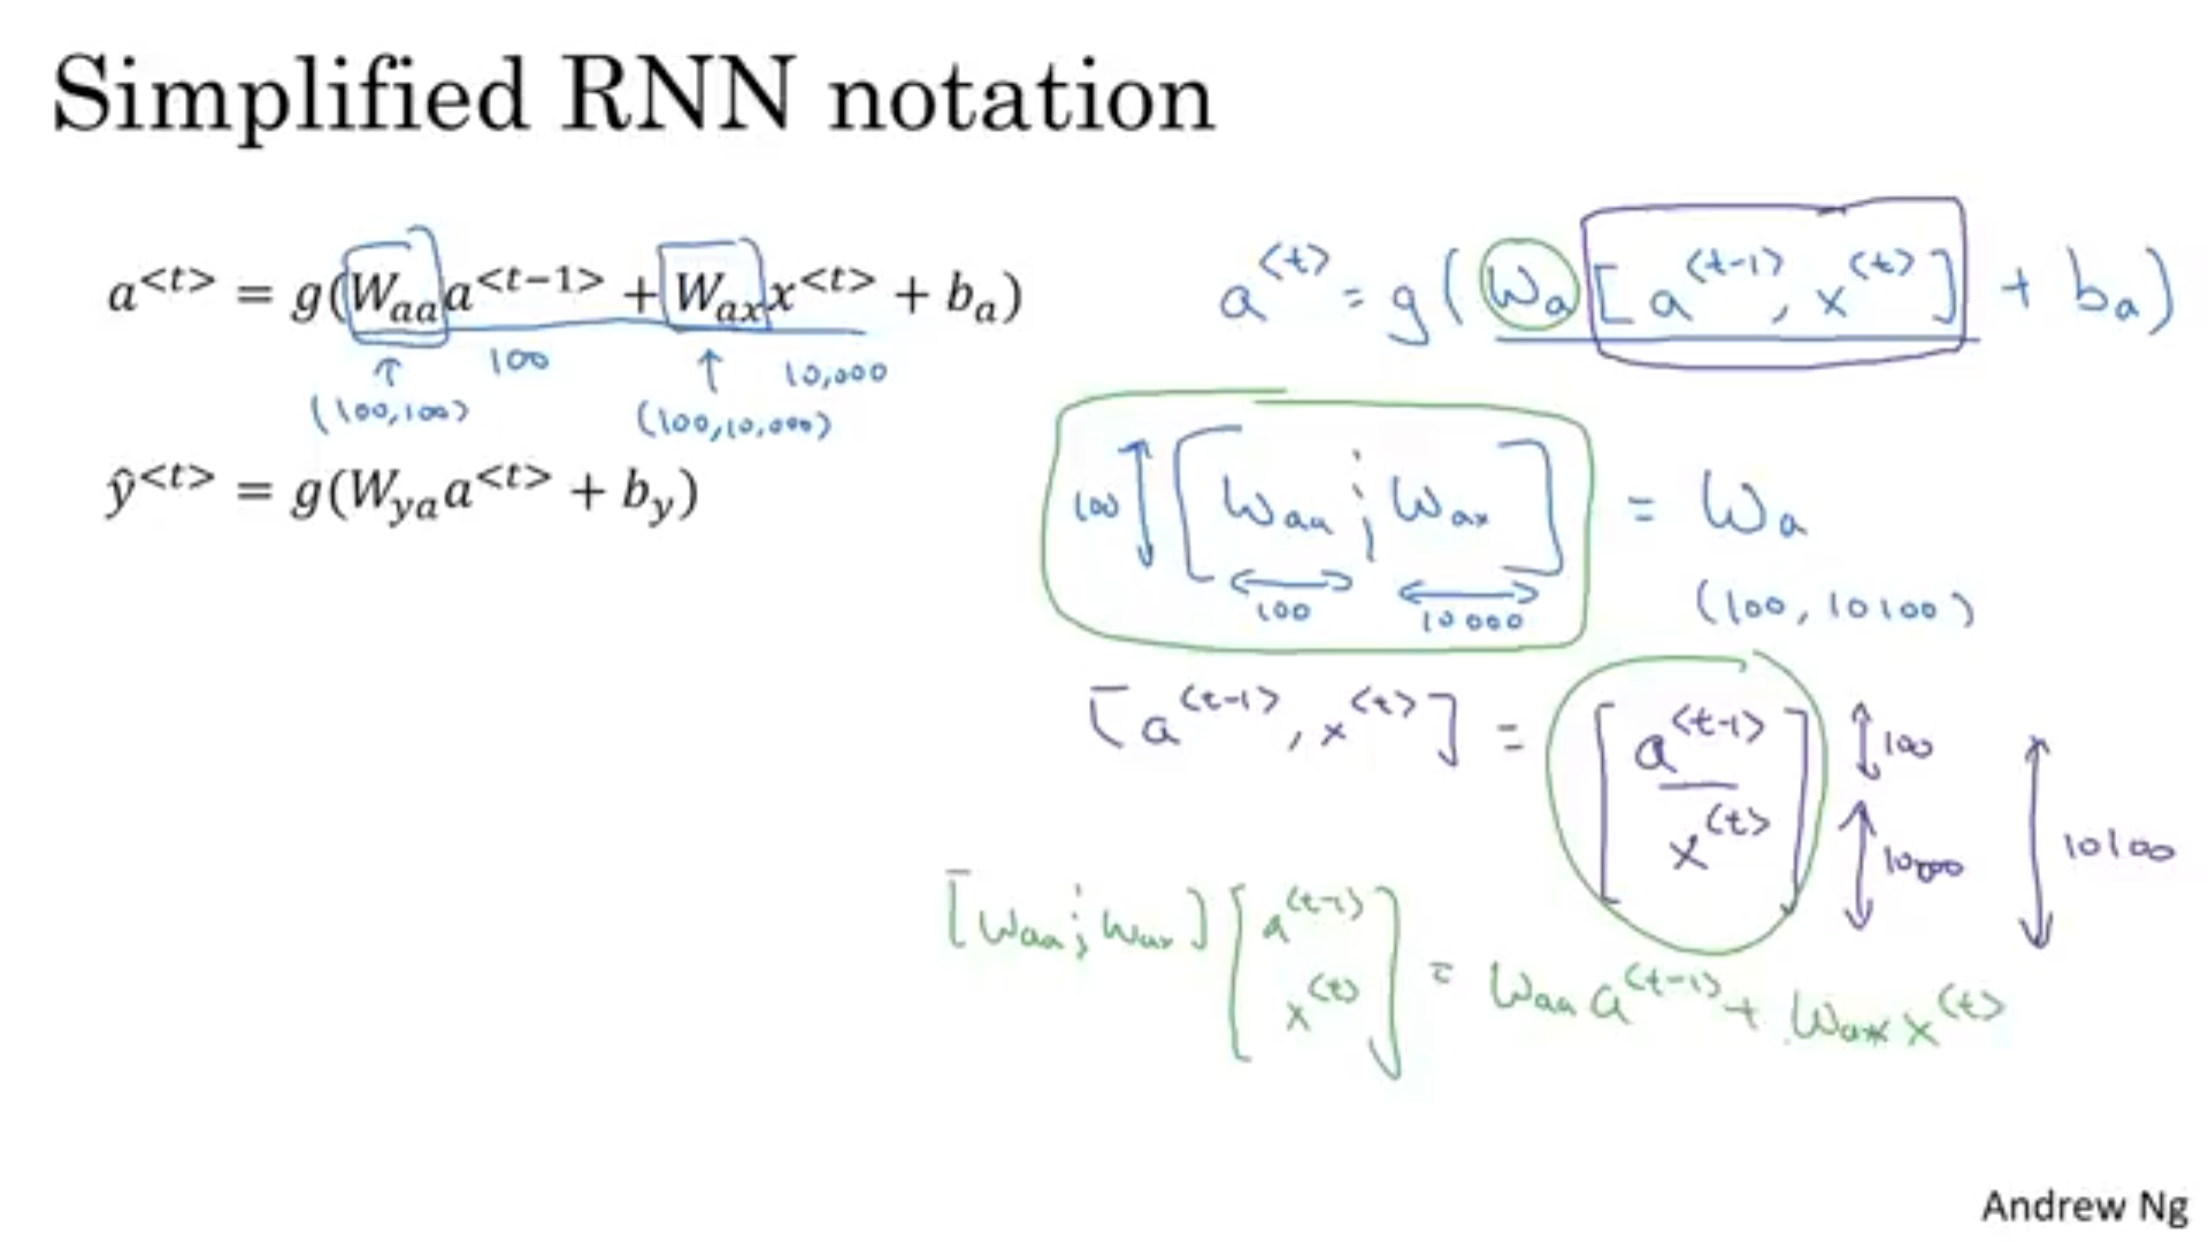 Simplified RNN notation
a^{<t>} = g(W_{aa}a^{<t−1>} + W_{ax}x^{<t>} + b_a)
↑ 100 ↑ 10,000
(100,100) (100,10,000)
ŷ^{<t>} = g(W_{ya}a^{<t>} + b_y)
a^{<t>} = g(W_a[a^{<t-1>}, x^{<t>}] + b_a)
100 [W_{aa} ¦ W_{ax}] = W_a
100 10000 (100, 10100)
[a^{<t-1>}, x^{<t>}] = [a^{<t-1>} 100
x^{<t>}] 10000 10100
[W_{aa} ¦ W_{ax}] [a^{<t-1>}
x^{<t>}] = W_{aa} a^{<t-1>} + W_{ax} x^{<t>}
Andrew Ng